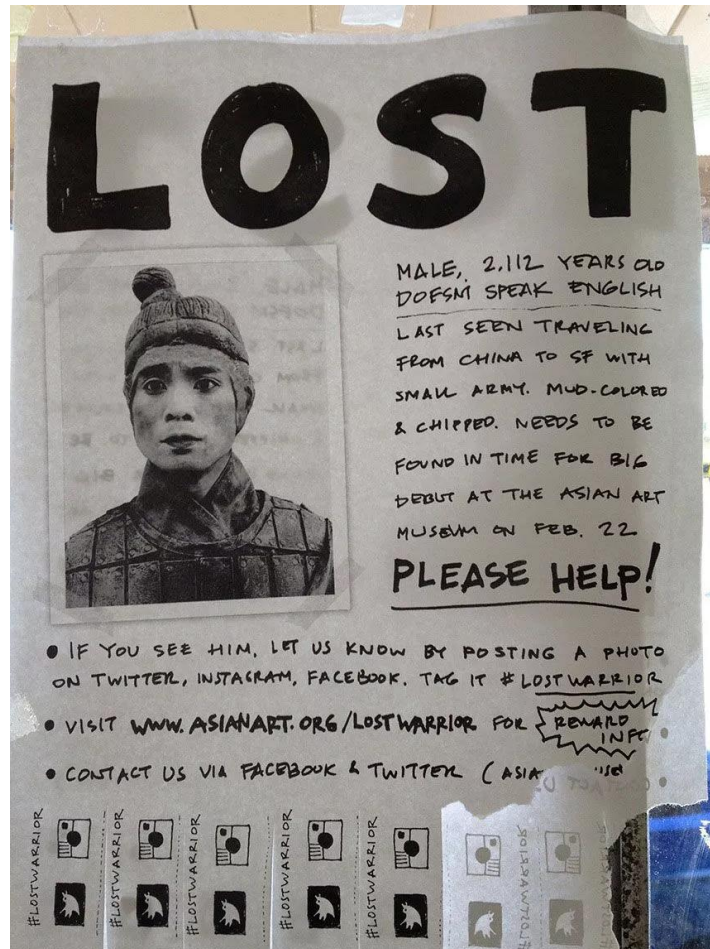 LOST
MALE, 2,112 YEARS OLD
DOESNT SPEAK ENGLISH
LAST SEEN TRAVELING
FROM CHINA TO SF WITH
SMALL ARMY. MUD-COLORED
& CHIPPED. NEEDS TO BE
FOUND IN TIME FOR BIG
DEBUT AT THE ASIAN ART
MUSEUM ON FEB. 22
PLEASE HELP!
• IF YOU SEE HIM, LET US KNOW BY POSTING A PHOTO
ON TWITTER, INSTAGRAM, FACEBOOK. TAG IT #LOSTWARRIOR
• VISIT WWW.ASIANART.ORG/LOSTWARRIOR FOR REWARD
INFO
• CONTACT US VIA FACEBOOK & TWITTER (ASIA
#LOSTWARRIOR
#LOSTWARRIOR
#LOSTWARRIOR
#LOSTWARRIOR
#LOSTWARRIOR